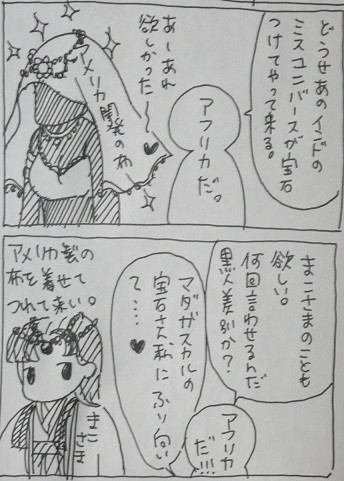 どうせあのインドの
ミスユニバースが宝石
つけてやって来る。
アフリカだ。
あーあれ
欲しかった
〜♥
アメリカ開発の布
まこさまのことも
欲しい。
何回言わせるんだ
黒人差別か?
アフリカ
だ!!!
マダガスカルの
宝石さん私にふり向い
て…♥
アメリカ製の
布を着せて
つれて来い。
まこさま